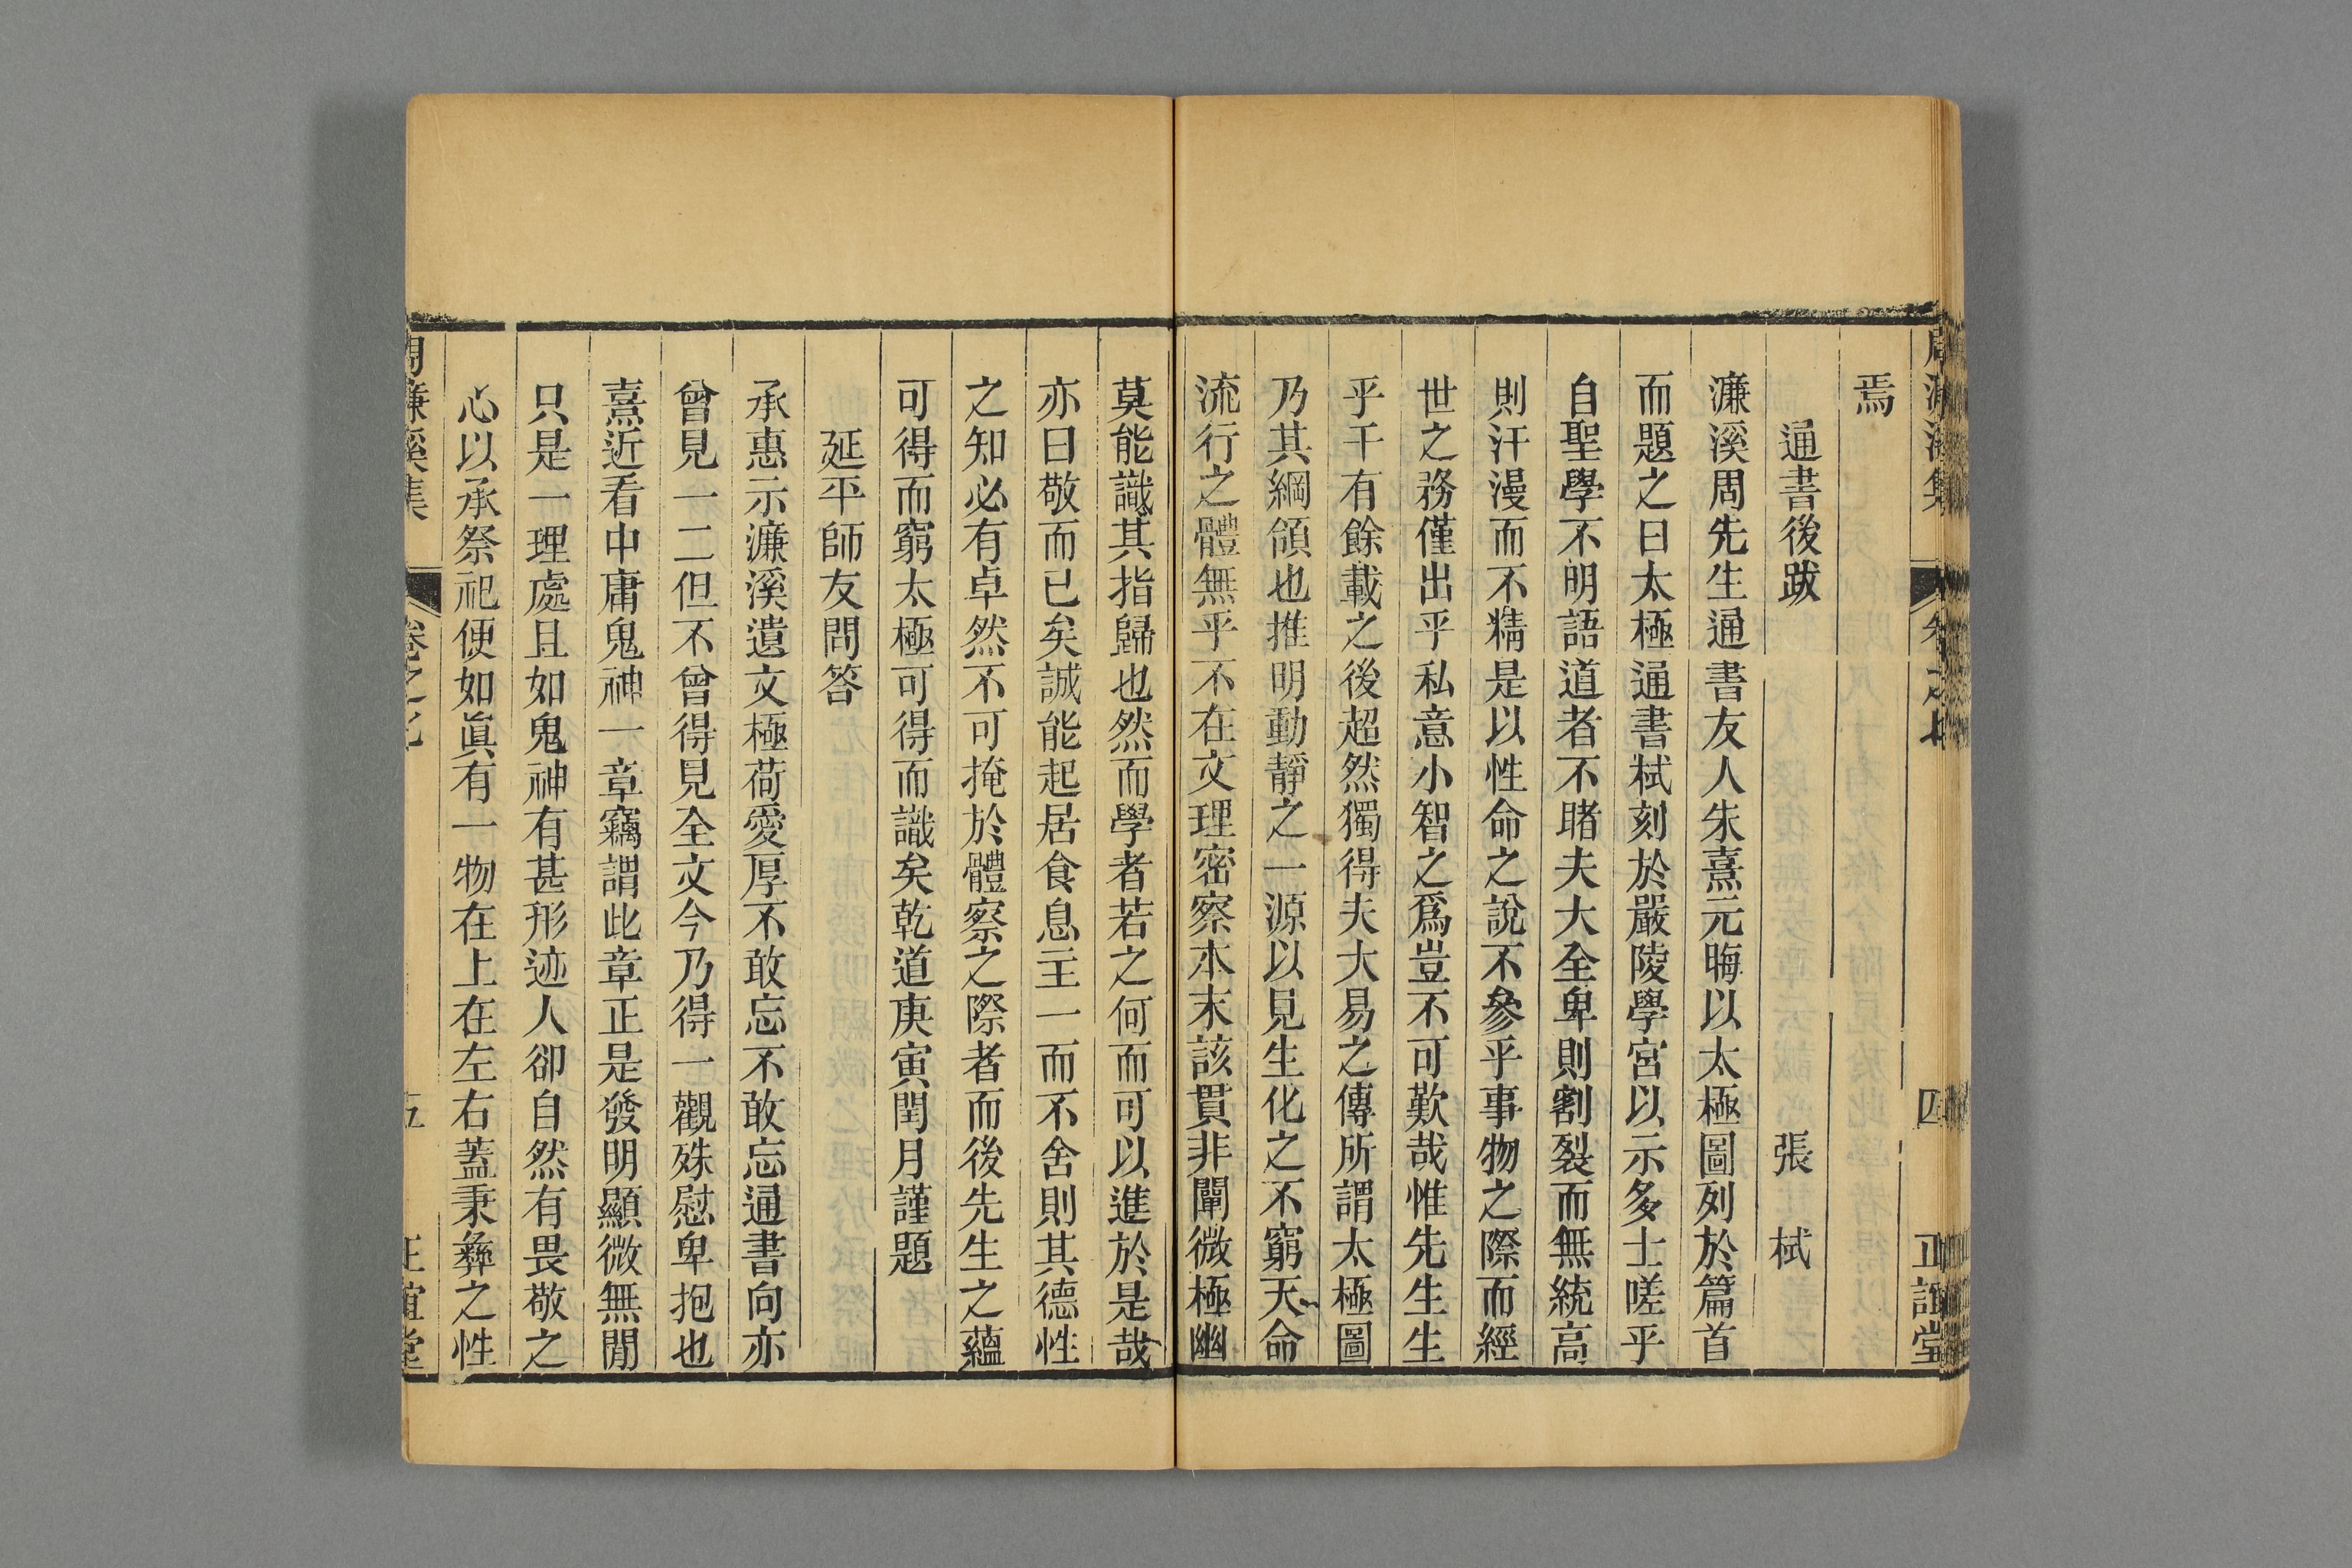 焉
通書後跋 張栻
濂溪周先生通書友人朱熹元晦以太極圖列於篇首
而題之曰太極通書栻刻於嚴陵學宮以示多士嗟乎
自聖學不明語道者不睹夫大全卑則割裂而無統高
則汗漫而不精是以性命之說不參乎事物之際而經
世之務僅出乎私意小智之爲豈不可歎哉惟先生生
乎千有餘載之後超然獨得夫大易之傳所謂太極圖
乃其綱領也推明動靜之一源以見生化之不窮天命
流行之體無乎不在文理密察本末該貫非闡微極幽
莫能識其指歸也然而學者若之何而可以進於是哉
亦曰敬而已矣誠能起居食息主一而不舍則其德性
之知必有卓然不可掩於體察之際者而後先生之蘊
可得而窮太極可得而識矣乾道庚寅閏月謹題
延平師友問答
承惠示濂溪遺文極荷愛厚不敢忘不敢忘通書向亦
曾見一二但不曾得見全文今乃得一觀殊慰卑抱也
熹近看中庸鬼神一章竊謂此章正是發明顯微無閒
只是一理處且如鬼神有甚形迹人卻自然有畏敬之
心以承祭祀便如眞有一物在上在左右蓋秉彝之性
周濂溪集 卷之七 五 正誼堂